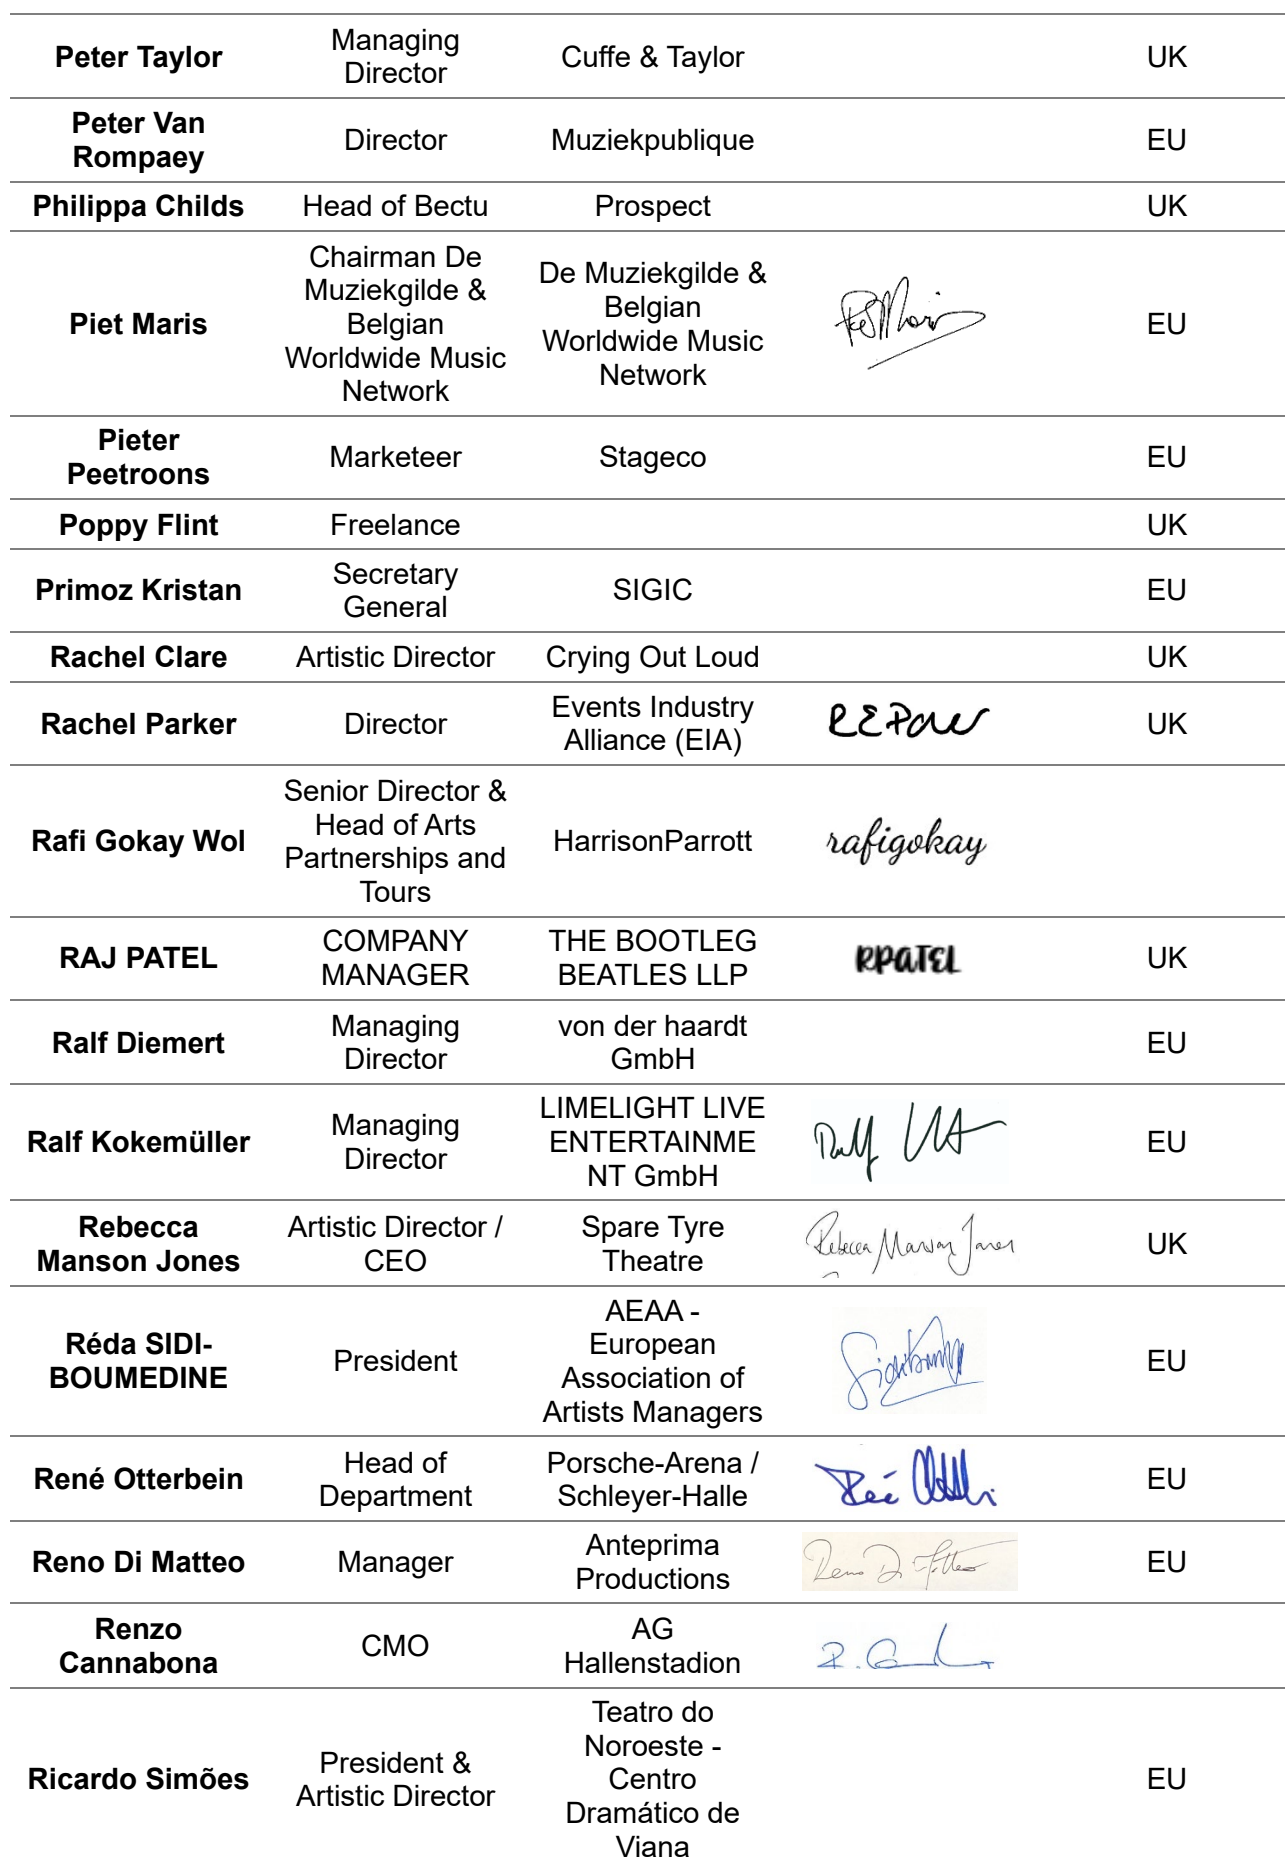 Peter Taylor
Managing
Director
Cuffe & Taylor
UK
Peter Van
Rompaey
Director
Muziekpublique
EU
Philippa Childs
Head of Bectu
Prospect
UK
Piet Maris
Chairman De
Muziekgilde &
Belgian
Worldwide Music
Network
De Muziekgilde &
Belgian
Worldwide Music
Network
EU
Pieter
Peetroons
Marketeer
Stageco
EU
Poppy Flint
Freelance
UK
Primoz Kristan
Secretary
General
SIGIC
EU
Rachel Clare
Artistic Director
Crying Out Loud
UK
Rachel Parker
Director
Events Industry
Alliance (EIA)
UK
Rafi Gokay Wol
Senior Director &
Head of Arts
Partnerships and
Tours
HarrisonParrott
rafigokay
RAJ PATEL
COMPANY
MANAGER
THE BOOTLEG
BEATLES LLP
RPATEL
UK
Ralf Diemert
Managing
Director
von der haardt
GmbH
EU
Ralf Kokemüller
Managing
Director
LIMELIGHT LIVE
ENTERTAINME
NT GmbH
Ralf
EU
Rebecca
Manson Jones
Artistic Director /
CEO
Spare Tyre
Theatre
Rebecca Manson Jones
UK
Réda SIDI-
BOUMEDINE
President
AEAA -
European
Association of
Artists Managers
EU
René Otterbein
Head of
Department
Porsche-Arena /
Schleyer-Halle
EU
Reno Di Matteo
Manager
Anteprima
Productions
Reno Di Matteo
EU
Renzo
Cannabona
CMO
AG
Hallenstadion
Ricardo Simões
President &
Artistic Director
Teatro do
Noroeste -
Centro
Dramático de
Viana
EU